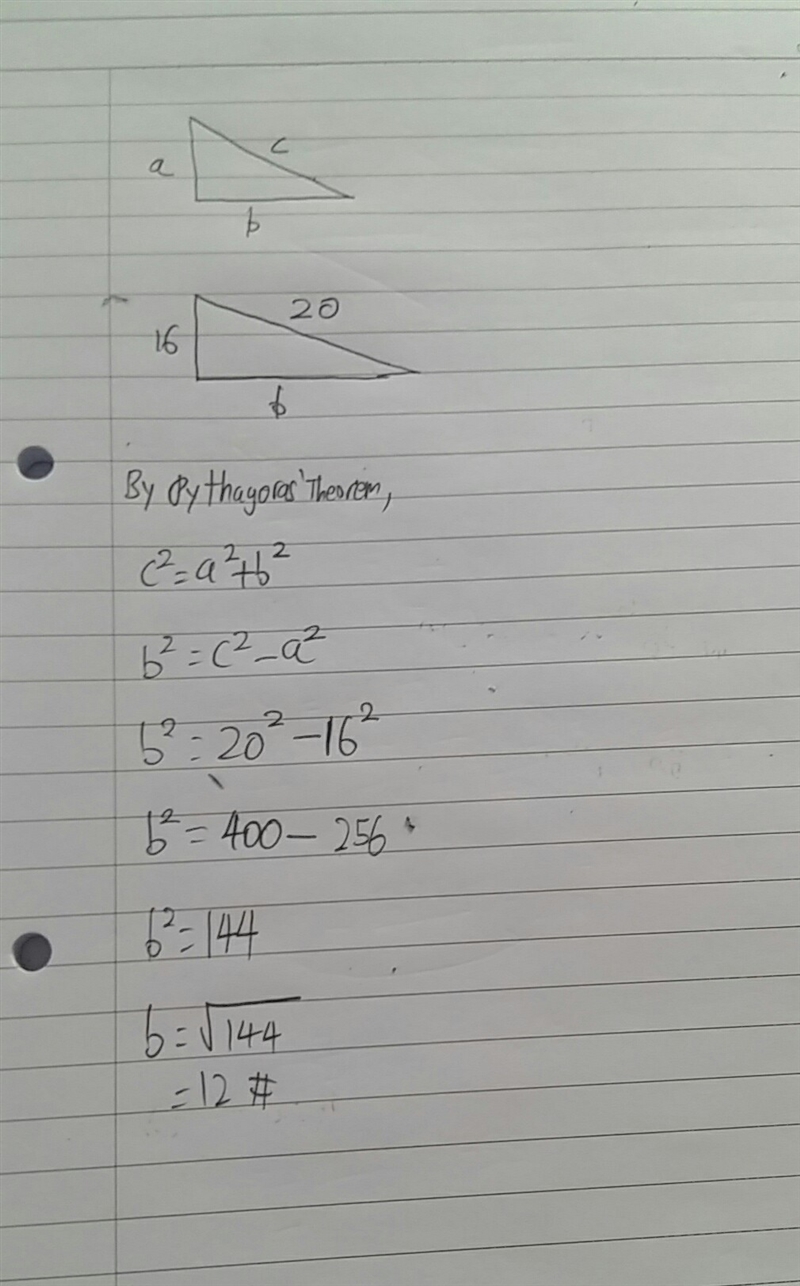 c
a
b
20
16
b
By Pythagoras' Theorem,
c²=a²+b²
b²=c²-a²
b²=20²-16²
b²=400-256
b²=144
b=√144
=12 #